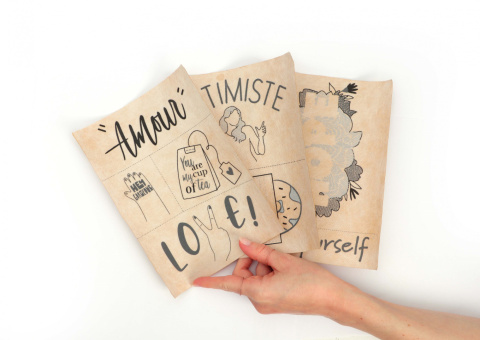 "Amour"
You
are
my cup
of tea
LOVE!
TIMISTE
urself